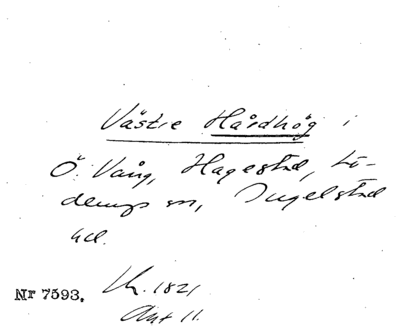 Västre Hårdhög i
Ö. Vång, Hagestad, Lö-
derups sn, Ingelstad
hd.
Nr 7593. Kr. 1821
Akt 11.